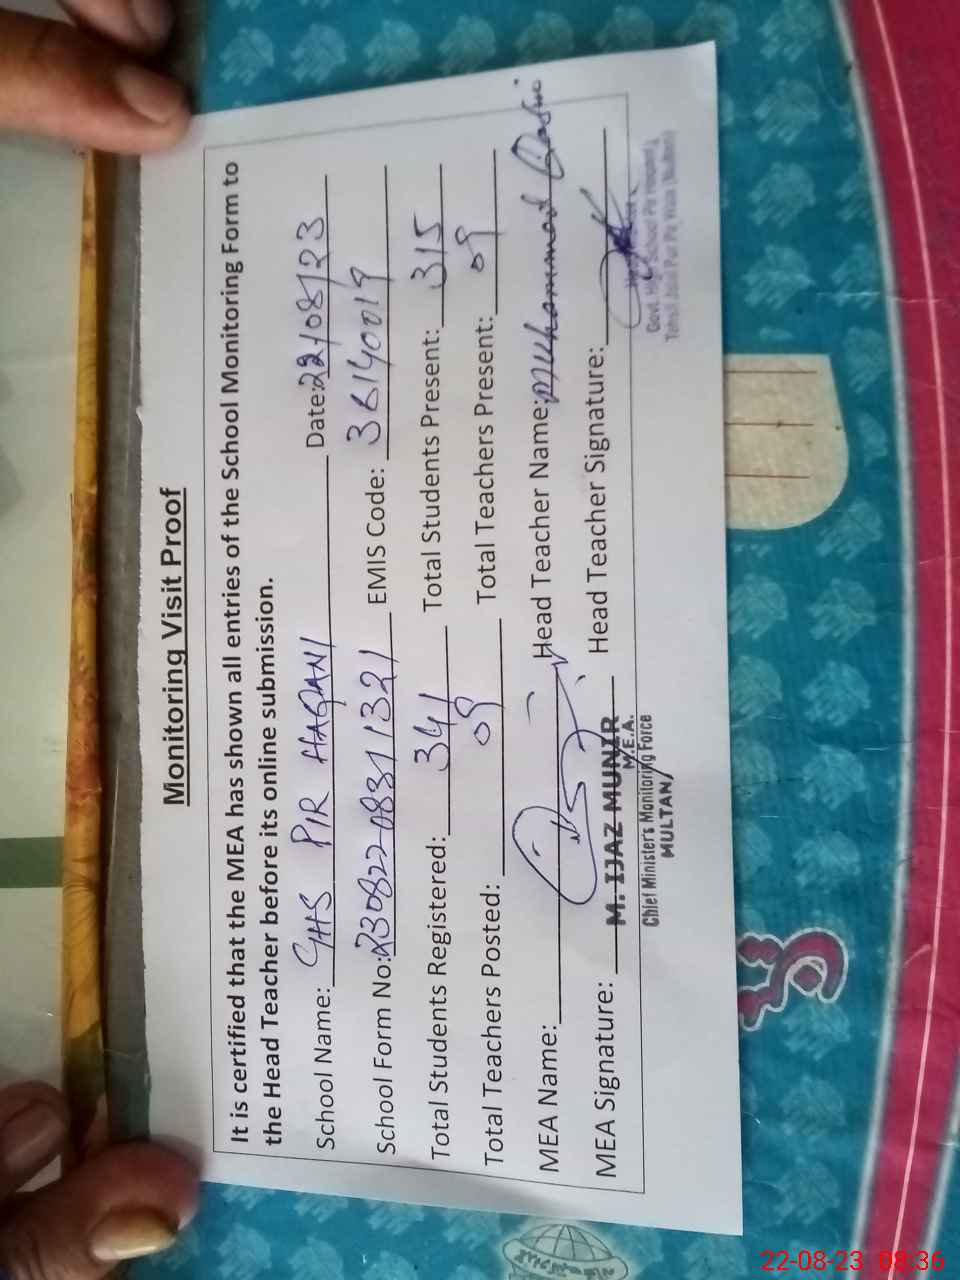 Monitoring Visit Proof
It is certified that the MEA has shown all entries of the School Monitoring Form to
the Head Teacher before its online submission.
School Name: GHS PIR HAQANI Date: 22/08/23
School Form No: 230822-0831 1321 EMIS Code: 36140019
Total Students Registered: 341 Total Students Present: 315
Total Teachers Posted: 09 Total Teachers Present: 09
MEA Name: Head Teacher Name: Muhammad Qasim
MEA Signature: Head Teacher Signature:
M. IJAZ MUNIR
M.E.A.
Chief Minister's Monitoring Force
MULTAN
Govt. High School
22-08-23 08:36